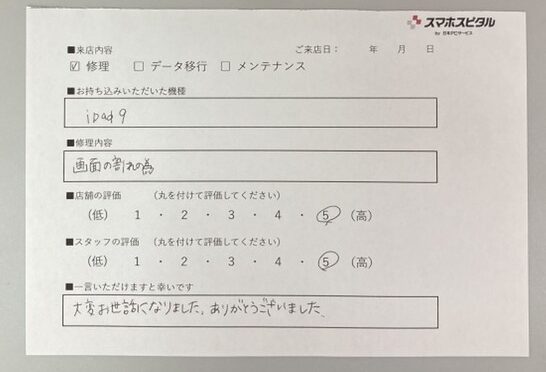 スマホスピタル
by 日本PCサービス
■来店内容 ご来店日： 年 月 日
☑ 修理 □ データ移行 □ メンテナンス
■お持ち込みいただいた機種
ipad 9
■修理内容
画面の割れの為
■店舗の評価 （丸を付けて評価してください）
（低） 1 ・ 2 ・ 3 ・ 4 ・ 5 （高）
■スタッフの評価 （丸を付けて評価してください）
（低） 1 ・ 2 ・ 3 ・ 4 ・ 5 （高）
■一言いただけますと幸いです
大変お世話になりました。ありがとうございました。